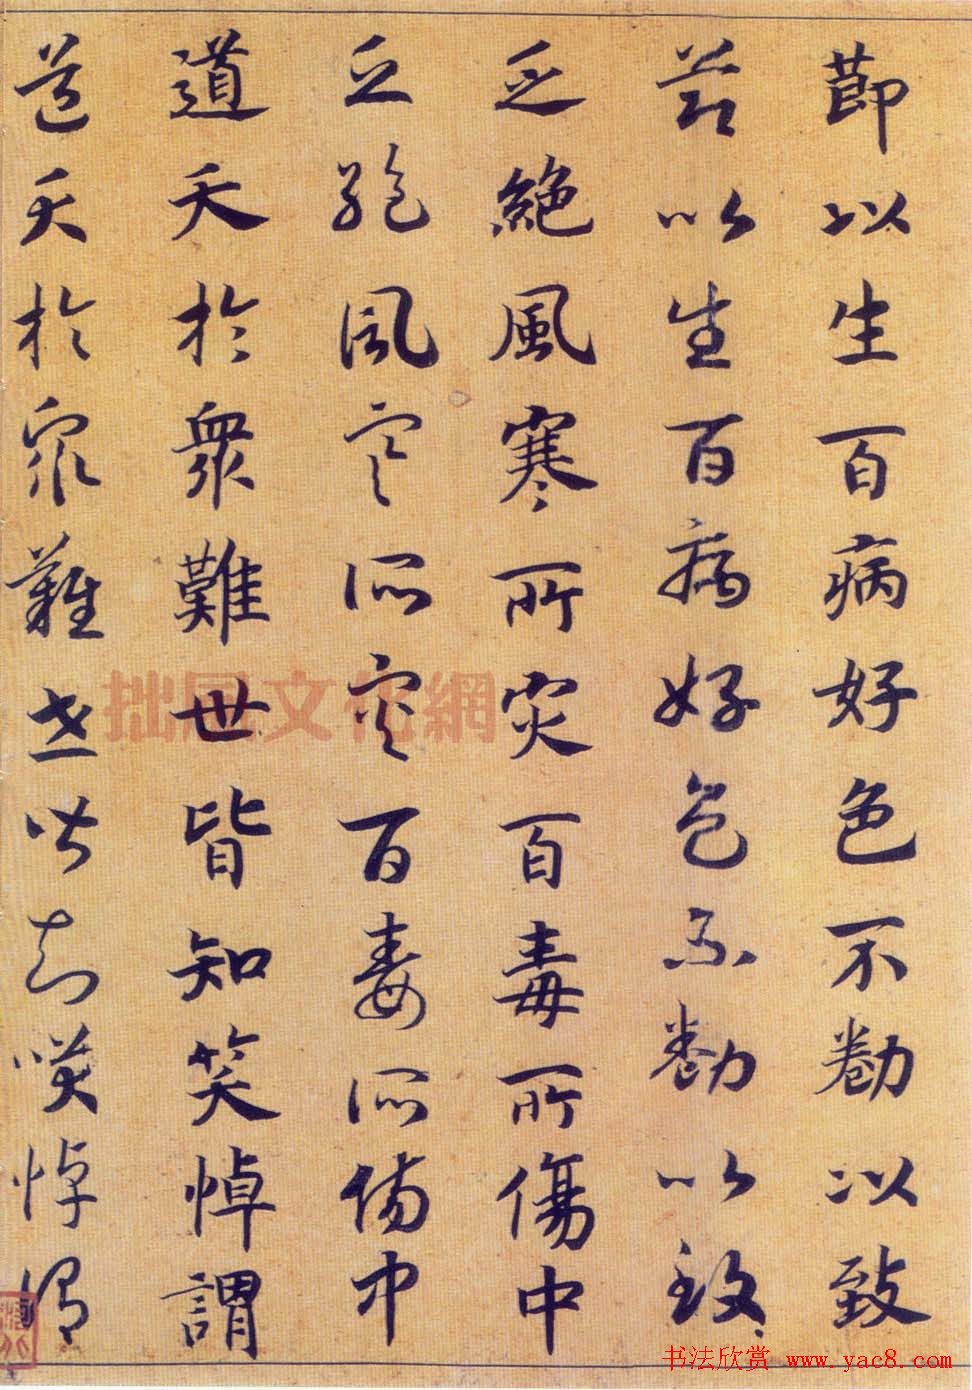 節以生百病好色不勌以致
節以生百病好色不勌以致
乏絕風寒所災百毒所傷中
乏絕風寒所災百毒所傷中
道夭於衆難世皆知笑悼謂
道夭於衆難世皆知咲悼謂
拙風文化網
书法欣赏 www.yac8.com